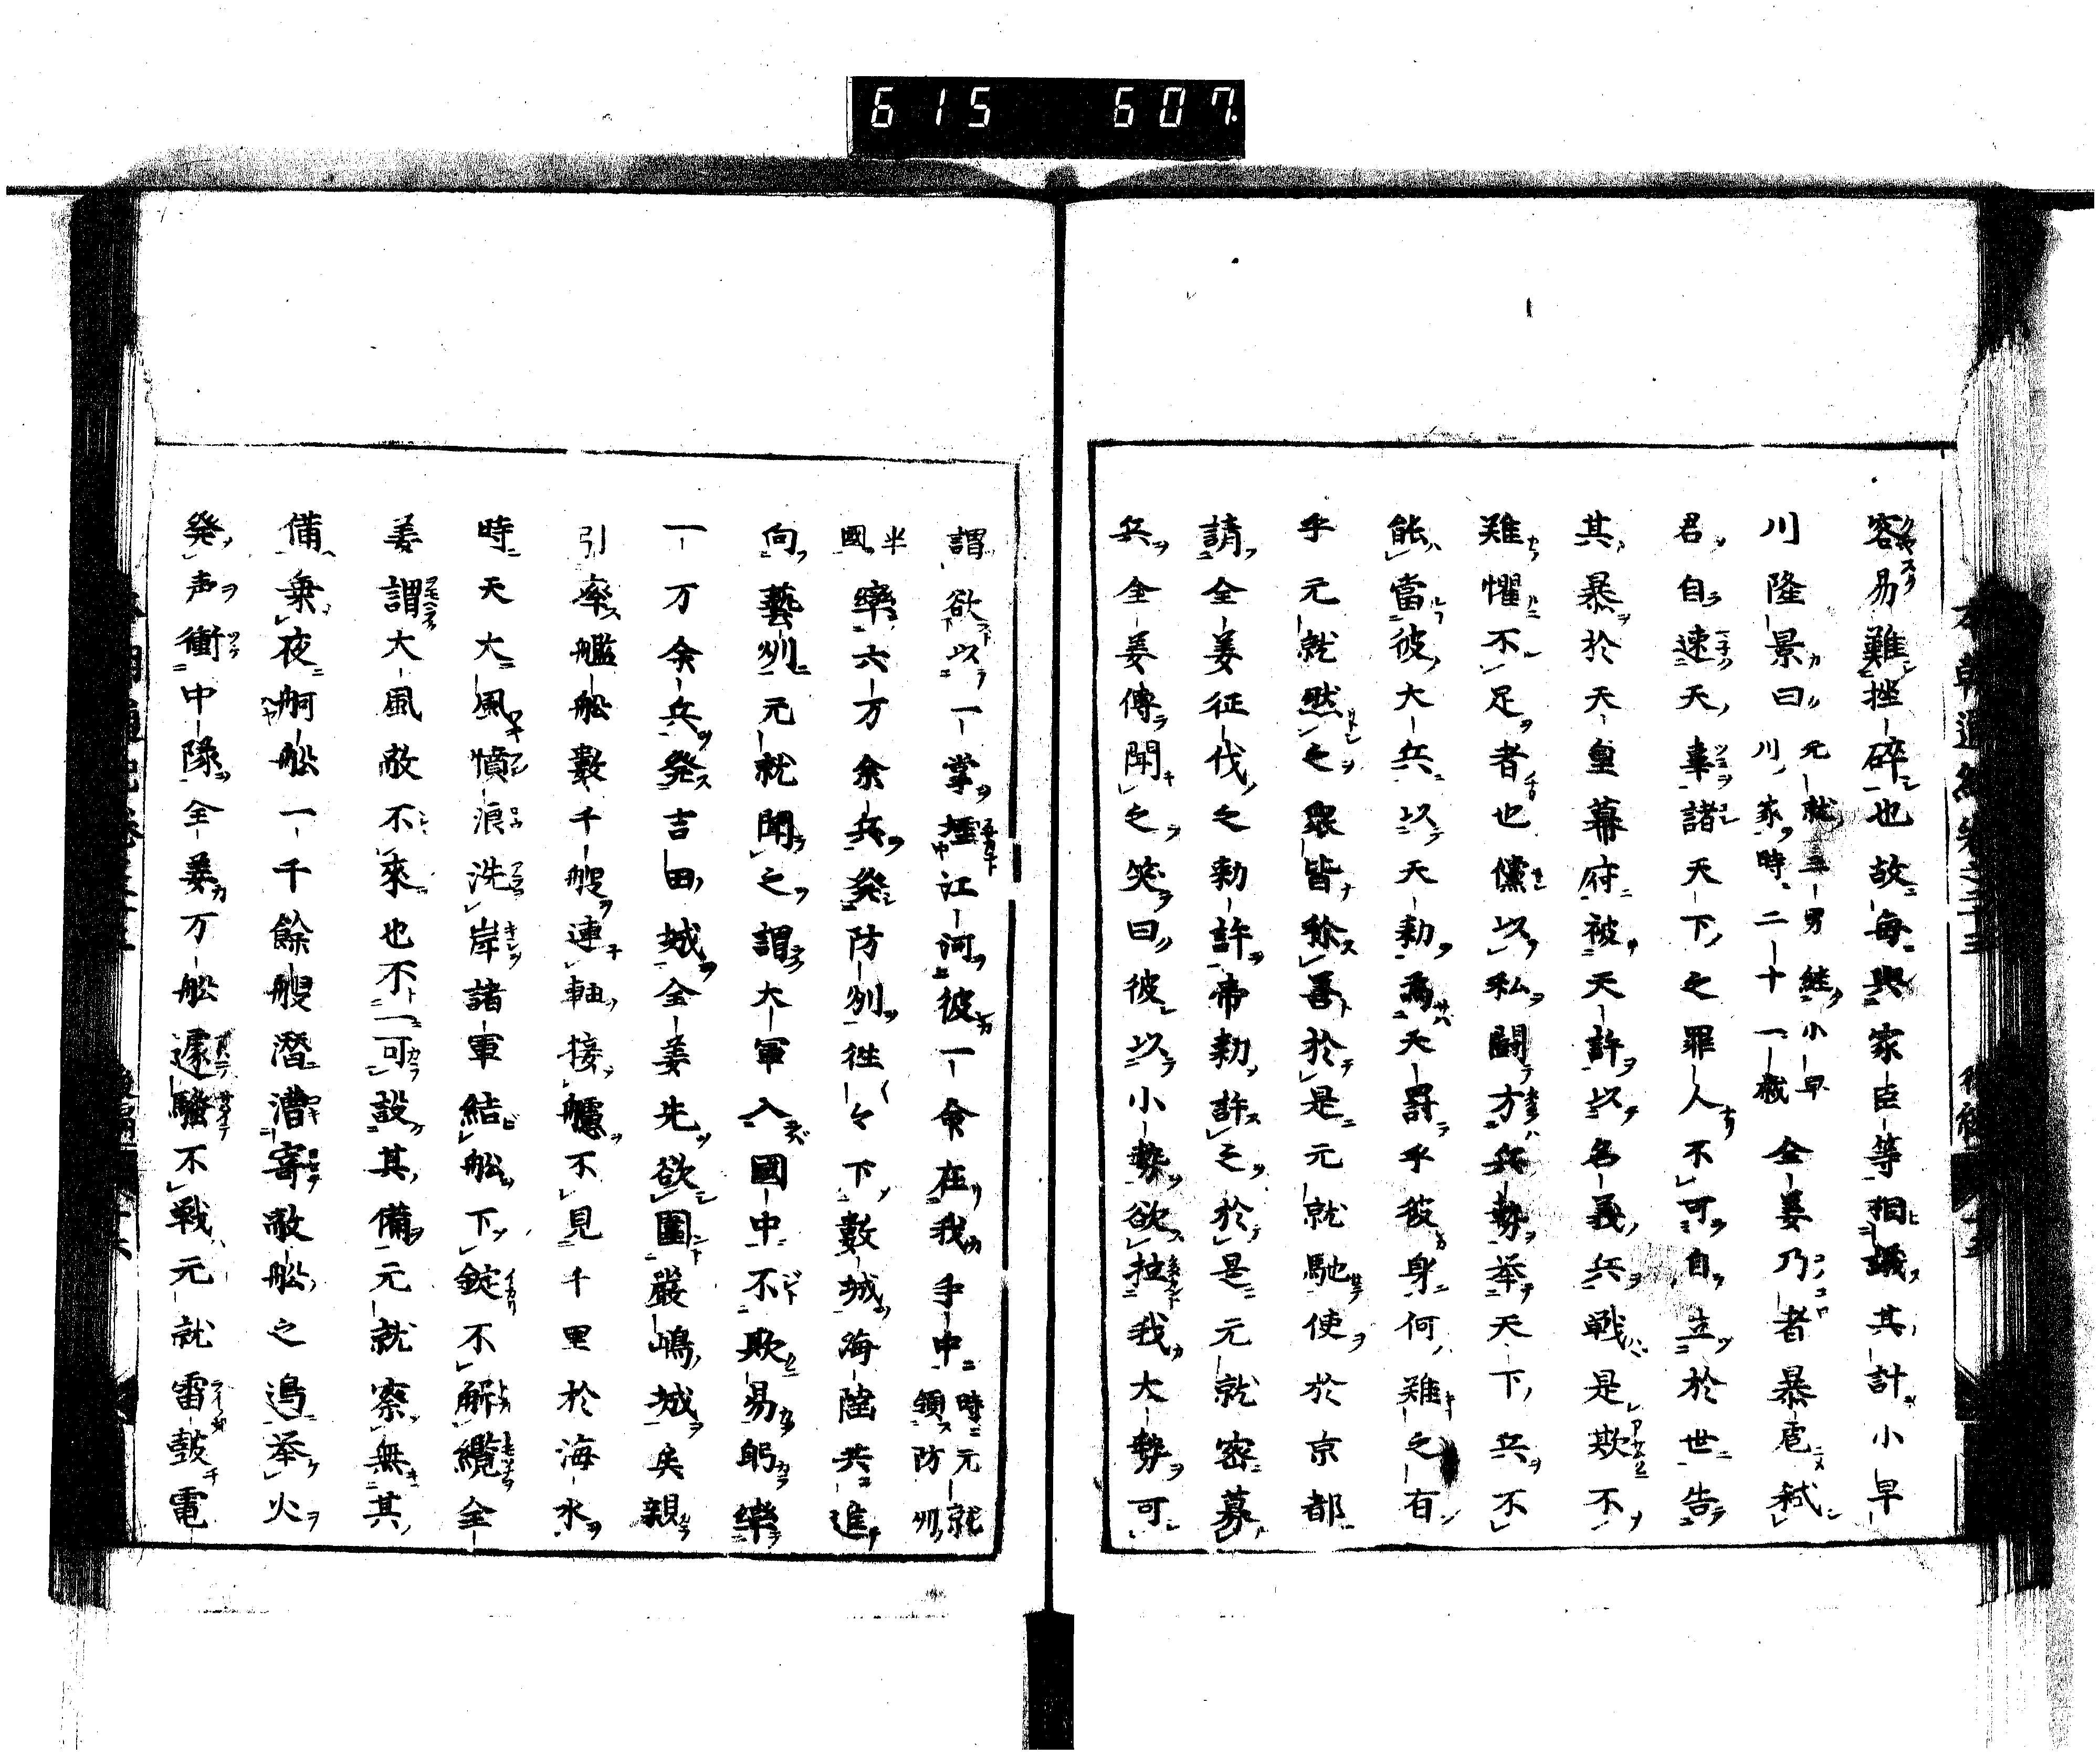 615 607
容易難挫碎也故每與家臣等相議其計小早
川隆景曰元就三男継小早川家時二十一歳全姜乃者暴虐弑
君自速天事諸天下之罪人不可自立於世告
其暴於天皇幕府被天許以名義兵戦是欺不
難懼不足者也儻以私闘方兵勢挙天下兵不
能當彼大兵以天勅為天罸乎彼身何難之有
乎元就然之衆皆称善於是元就馳使於京都
請全姜征伐之勅許帝勅許之於是元就密募
兵全姜傳聞之笑曰彼以小勢欲拉我大勢可
謂欲以一掌堙江河彼一命在我手中時元就領防州
半國率六万余兵発防州徃々下數城海陸共進
向藝州元就聞之謂大軍入國中不欺易躬率
一万余兵発吉田城全姜先欲圍嚴嶋城矣親
引率艦舩數千艘連軸接艫不見千里於海水
時天大風憤浪洗岸諸軍結舩下錠不解纜全
姜謂大風敵不來也不可設其備元就察無其
備乗夜舸舩一千餘艘潜漕寄敵舩之過挙火
発声衝中隊全姜万舩遽騒不戦元就雷鼓電